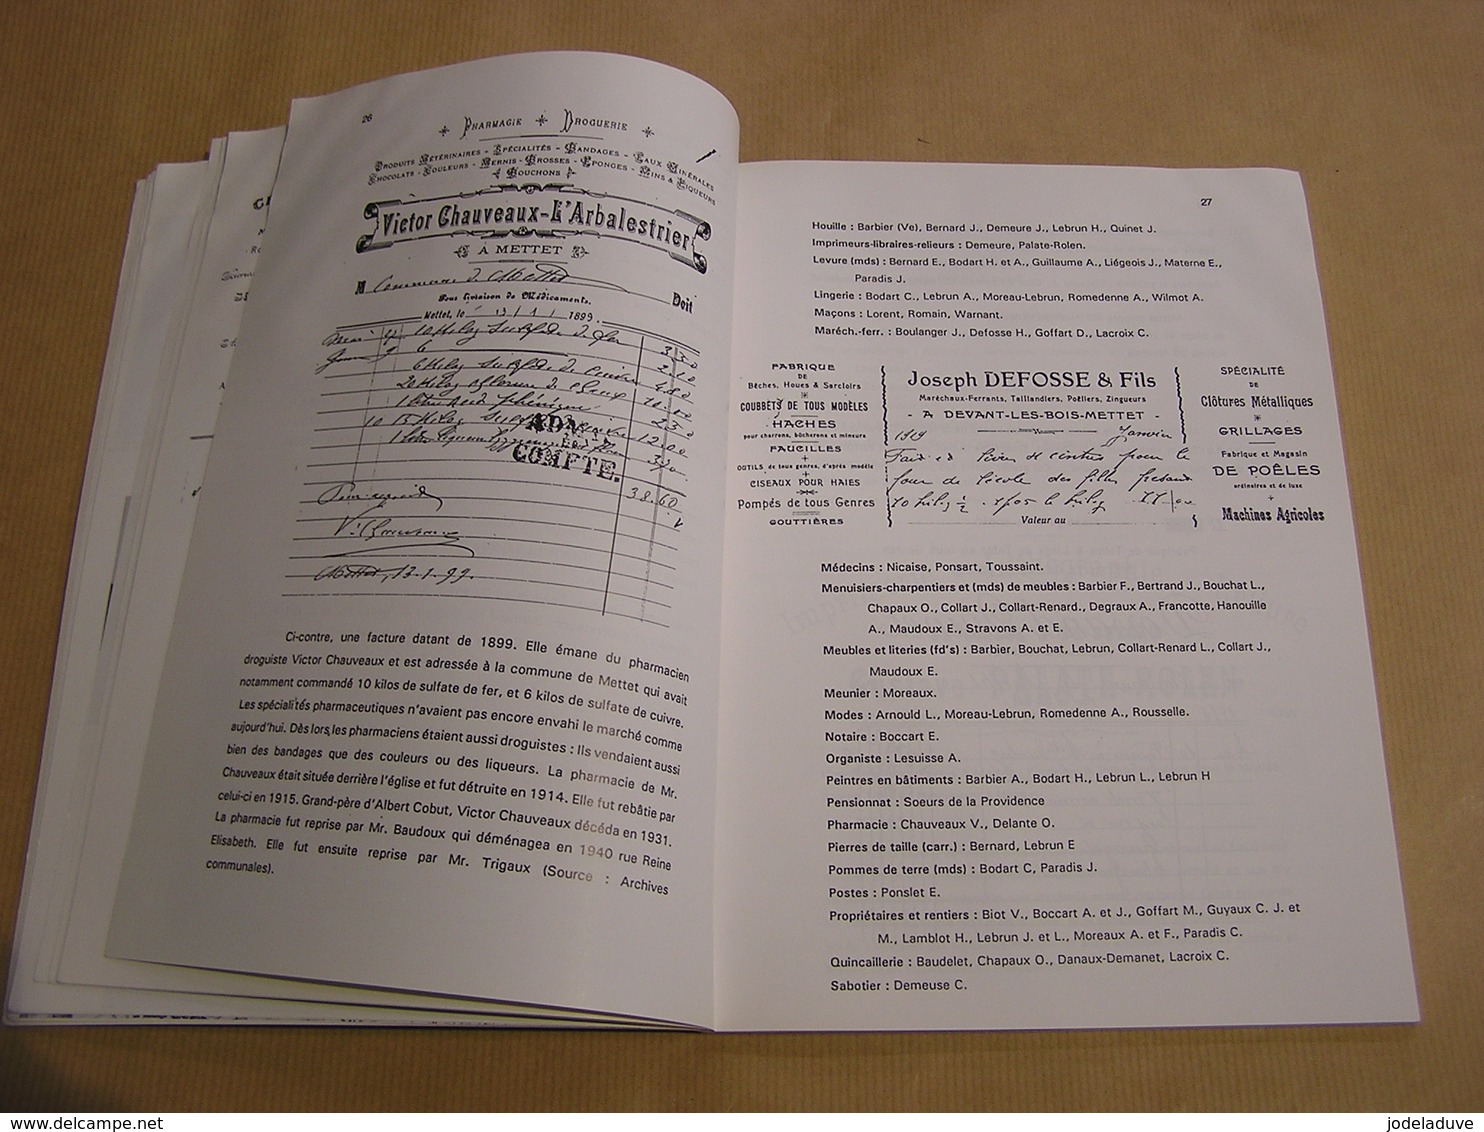 26
PHARMACIE DROGUERIE
PRODUITS VÉTÉRINAIRES - SPÉCIALITÉS - BANDAGES - EAUX MINÉRALES
CHOCOLATS - COULEURS - VERNIS - BROSSES - EPONGES - VINS & LIQUEURS
BOUCHONS
Victor Chauveaux-L'Arbalestrier
À METTET
M Commune de Mettet Doit
Pour livraison de Médicaments.
Mettet, le 13/1/ 1899.
10 Kilog sulfate de fer 3 30
6 Kilog sulfate de cuivre 4 80
12.00
ADMIS
EN
COMPTE.
38.60
Mettet, 13-1-99.
Ci-contre, une facture datant de 1899. Elle émane du pharmacien
droguiste Victor Chauveaux et est adressée à la commune de Mettet qui avait
notamment commandé 10 kilos de sulfate de fer, et 6 kilos de sulfate de cuivre.
Les spécialités pharmaceutiques n'avaient pas encore envahi le marché comme
aujourd'hui. Dès lors, les pharmaciens étaient aussi droguistes : Ils vendaient aussi
bien des bandages que des couleurs ou des liqueurs. La pharmacie de Mr.
Chauveaux était située derrière l'église et fut détruite en 1914. Elle fut rebâtie par
celui-ci en 1915. Grand-père d'Albert Cobut, Victor Chauveaux décéda en 1931.
La pharmacie fut reprise par Mr. Baudoux qui déménagea en 1940 rue Reine
Elisabeth. Elle fut ensuite reprise par Mr. Trigaux (Source : Archives
communales).
27
Houille : Barbier (Ve), Bernard J., Demeure J., Lebrun H., Quinet J.
Imprimeurs-libraires-relieurs : Demeure, Palate-Rolen.
Levure (mds) : Bernard E., Bodart H. et A., Guillaume A., Liégeois J., Materne E.,
Paradis J.
Lingerie : Bodart C., Lebrun A., Moreau-Lebrun, Romedenne A., Wilmot A.
Maçons : Lorent, Romain, Warnant.
Maréch.-ferr. : Boulanger J., Defosse H., Goffart D., Lacroix C.
FABRIQUE
DE
Bêches, Houes & Sarcloirs
COUBBÈTS DE TOUS MODÈLES
HACHES
pour charrons, bûcherons et mineurs
FAUCILLES
OUTILS de tous genres, d'après modèle
CISEAUX POUR HAIES
Pompes de tous Genres
GOUTTIÈRES
Joseph DEFOSSE & Fils
Maréchaux-Ferrants, Taillandiers, Poêliers, Zingueurs
- A DEVANT-LES-BOIS-METTET -
1919 Janvier
Valeur au
SPÉCIALITÉ
DE
Clôtures Métalliques
GRILLAGES
Fabrique et Magasin
DE POÊLES
ordinaires et de luxe
Machines Agricoles
Médecins : Nicaise, Ponsart, Toussaint.
Menuisiers-charpentiers et (mds) de meubles : Barbier F., Bertrand J., Bouchat L.,
Chapaux O., Collart J., Collart-Renard., Degraux A., Francotte, Hanouille
A., Maudoux E., Stravons A. et E.
Meubles et literies (fd's) : Barbier, Bouchat, Lebrun, Collart-Renard L., Collart J.,
Maudoux E.
Meunier : Moreaux.
Modes : Arnould L., Moreau-Lebrun, Romedenne A., Rousselle.
Notaire : Boccart E.
Organiste : Lesuisse A.
Peintres en bâtiments : Barbier A., Bodart H., Lebrun L., Lebrun H
Pensionnat : Soeurs de la Providence
Pharmacie : Chauveaux V., Delante O.
Pierres de taille (carr.) : Bernard, Lebrun E
Pommes de terre (mds) : Bodart C, Paradis J.
Postes : Ponslet E.
Propriétaires et rentiers : Biot V., Boccart A. et J., Goffart M., Guyaux C. J. et
M., Lamblot H., Lebrun J. et L., Moreaux A. et F., Paradis C.
Quincaillerie : Baudelet, Chapaux O., Danaux-Demanet, Lacroix C.
Sabotier : Demeuse C.
www.delcampe.net
jodeladuve